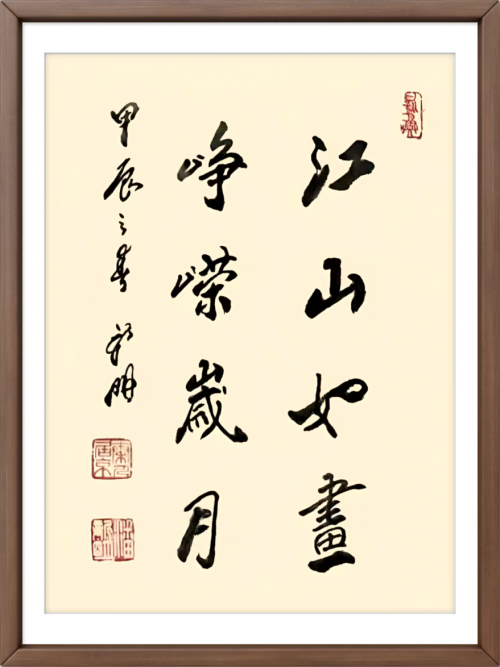 江山如畫
崢嶸歲月
甲辰之春